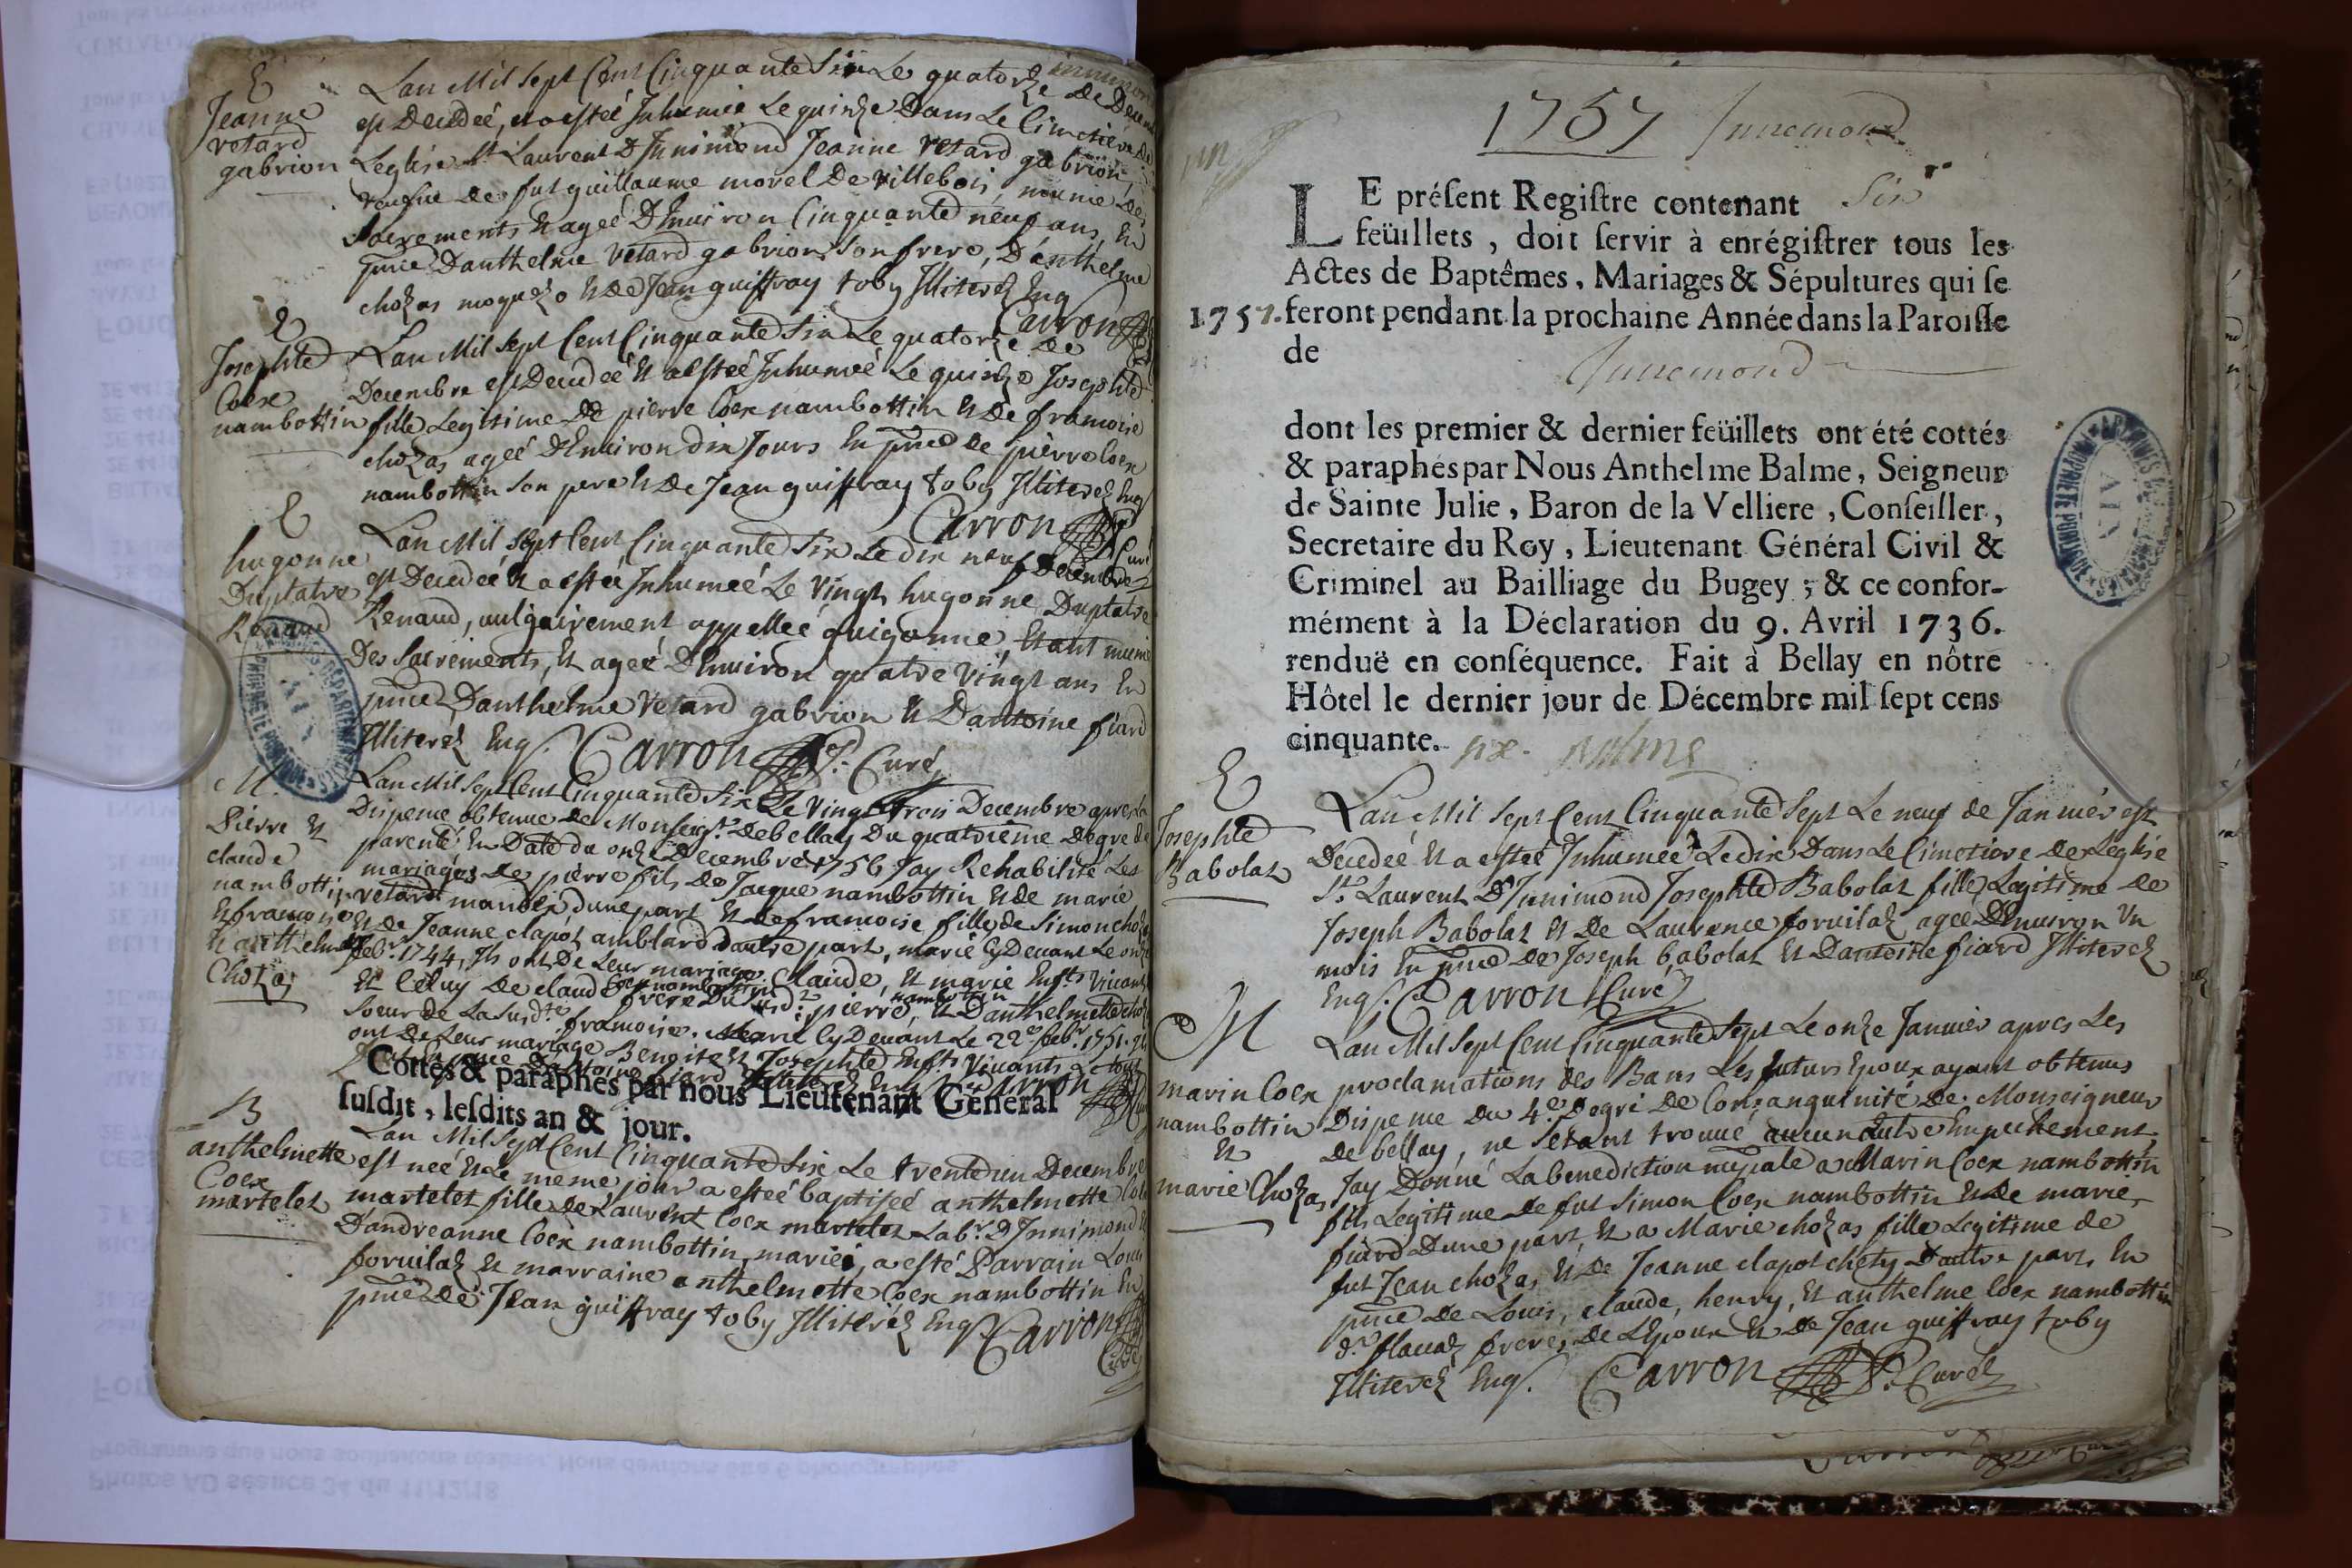 E
Jeanne
vetard
gabrion
Lan Mil Sept Cent Cinquante Six Le quatorze De Decem
est Decedeé, et a estée Inhumée Le quinze Dans Le Cimetiere De
Leglise St Laurent D'Inimond Jeanne vetard gabrion,
veufue De fut guillaume morel De villebois, munie Des
Sacrements et ageé D'Enuiron Cinquante neuf ans, En
pnce Danthelme vetard gabrion Son frere, D'anthelme
chozas moquez et De Jean guiffray toby Illiterez Enqs
Carron
E
Josephte
Coex
nambottin
Lan Mil Sept Cent Cinquante Six Le quatorze De
Decembre est Decedeé et a estée Inhumeé Le quinze Josephte
fille Legitime De pierre Coex nambottin et De francoise
chozas ageé D'Enuiron dix Jours En pnce De pierre Coex
nambottin Son pere et De Jean guiffray toby Illiterez Enqs
Carron Curé
E
hugonne
Duplatre
Renaud
Lan Mil Sept Cent Cinquante Six Le dix neuf Decembre
est Decedeé et a estée Inhumeé Le Vingt hugonne Duplatre
Renaud, vulgairement appelleé guigonne, Etant munie
Des Sacrements, et ageé D'Enuiron quatre Vingt ans En
pnce Danthelme Vetard gabrion et Dantoine fiard
Illiterez Enqs. Carron P. Curé
M.
Pierre et
claude
nambottin
et francoise
et anthelmette
Chozas
Lan Mil Sept Cent Cinquante Six Le Vingt trois Decembre apres La
Dispence obtenue De Monseigr. De bellay Du quatrieme Degré de
parenté En Date du onze Decembre 1756 Jay Rehabilité Les
mariages De pierre fils De Jacque nambottin et de marie
vetard mariés d'une part et De francoise fille de Simon chozas
et de Jeanne clapot amblard dautre part, marié Cy Deuant Le onze
febr. 1744, Ils ont De Leur mariage Claude, et marie Enfts Viuants
Et Celuy De claude Coex nambottin frere Du Susdt. pierre, nambottin et D'anthelmette chozas
Soeur de La Susdte francoise. Marié Cy Deuant Le 22e febr. 1751. Ils
ont De Leur mariage Benoite et Josephte Enfts Viuants
Cottés & paraphés par nous Lieutenant General
susdit, lesdits an & jour.
B
anthelmette
Coex
martelet
Lan Mil Sept Cent Cinquante Six Le trente un Decembre
est neé et Le meme jour a esteé baptiseé anthelmette Coex
martelet fille De Laurent Coex martelet Labr. D'Innimond et
D'andreanne Coex nambottin, mariés, a esté Parrain Louis
foruilaz et marraine anthelmette Coex nambottin En
pnce De Jean guiffray toby Illiterez Enqs Carron
Curé
1757 Innemond
LE présent Registre contenant Six
feüillets, doit servir à enrégistrer tous les
Actes de Baptêmes, Mariages & Sépultures qui se
1757. feront pendant la prochaine Année dans la Paroisse
de Innemond
dont les premier & dernier feüillets ont été cottés
& paraphés par Nous Anthelme Balme, Seigneur
de Sainte Julie, Baron de la Velliere, Conseiller,
Secretaire du Roy, Lieutenant Général Civil &
Criminel au Bailliage du Bugey ; & ce confor-
mément à la Déclaration du 9. Avril 1736.
renduë en conséquence. Fait à Bellay en nôtre
Hôtel le dernier jour de Décembre mil sept cens
cinquante. six. Balme
E
Josephte
Babolat
Lan Mil Sept Cent Cinquante Sept Le neuf de Januier est
Decedeé et a esteé Inhumeé Le dix Dans Le Cimetiere De Leglise
St. Laurent D'Inimond Josephte Babolat fille Legitime De
Joseph Babolat et De Laurence foruilaz ageé D'Enuiron Un
mois En pnce De Joseph babolat et Dantoine fiard Illiterez
Enqs. Carron Curé
M
marin Coex
nambottin
et
marie Chozas
Lan Mil Sept Cent Cinquante Sept Le onze Januier apres Les
proclamations des Bans Les futurs Epoux ayant obtenus
Dispence Du 4e. Degré De Consanguinité De Monseigneur
De bellay, ne Setant trouué aucun autre Empechement,
Jay Donné La benediction nuptiale a Marin Coex nambottin
fils Legitime de fut Simon Coex nambottin et De marie
fiard Dune part, et a Marie chozas fille Legitime de
fut Jean chozas et De Jeanne clapot chety Dautre part, En
pnce De Louis, claude, henry, et anthelme Coex nambottin
dt. flauaz freres De L'Epoux et De Jean guiffray toby
Illiterez Enqs. Carron P. Curé